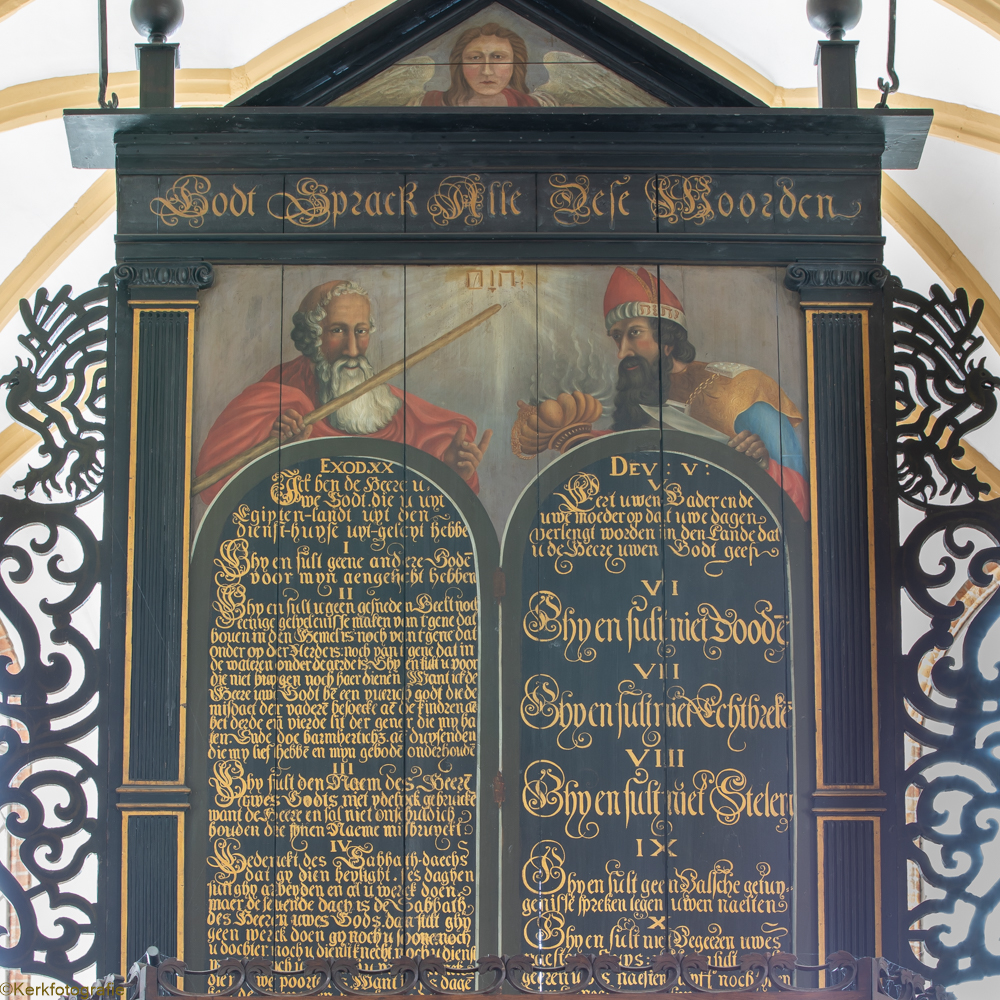 Godt Sprack Alle Dese Woorden
EXOD.XX
Ick ben de Heere u
uwe Godt die u uyt
Egipten-landt uyt den
dienst-huyse uyt-geleyt hebbe
I
Ghy en sult geene andere Godē
voor myn aengesicht hebben
II
Ghy en sult u geen gesneden Beelt noch
eenige gelyckenisse maken van t'gene dat
boven in den Hemel is noch van t'gene dat
onder op der Aerde is: noch van t'gene dat in
de wateren onder de aerde is Ghy en sult u voor
die niet buygen noch haer dienen Want ick de
Heere uw Godt ben een yverich godt die de
misdaet der vaderē besoecke aē de kindren aē
het derde en vierde lit der gener die my ha
ten Ende doe barmhertichz aē duysenden
die my lief hebbē en myn gebodē onderhoudē
III
Ghy sult den Naem des Heerē
uwes Godts niet ydelyck gebruickē
want de Heere en sal niet onschuldich
houden die synen Naeme misbruyckt
IV
Gedenckt des Sabbath-daechs
dat gy dien heylight. Ses daghen
sult ghy arbeyden en al u werck doen
maer de sevende dach is de Sabbath
des Heeren uwes Gods dan sult ghy
geen werck doen gy noch u sone noch
u dochter noch u dienstknecht noch u dienst
DEV: V:
V
Eert uwen Vader ende
uwe moeder op dat uwe dagen
verlengt worden in den Lande dat
u de Heere uwen Godt geeft
VI
Ghy en sult niet Doodē
VII
Ghy en sult niet Echtbrekē
VIII
Ghy en sult niet Stelen
IX
Ghy en sult geen Valsche getuy-
genisse spreken tegen uwen naesten
X
Ghy en sult niet Begeeren uwes
©Kerkfotografie